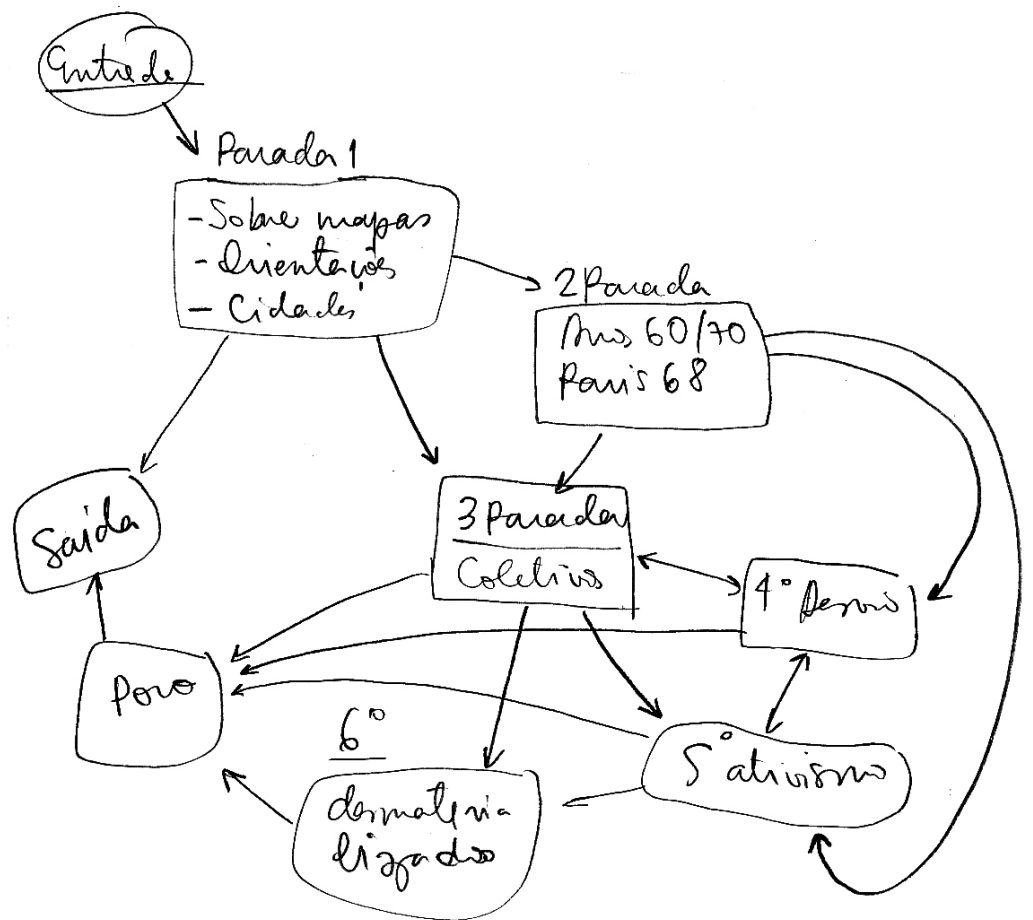 Entrada
Parada 1
- Sobre mapas
- Orientações
- Cidades
2 Parada
Anos 60/70
Paris 68
Saída
3 Parada
Coletivos
4º Desvio
Povo
6º
5º ativismo
desmateria
lizados